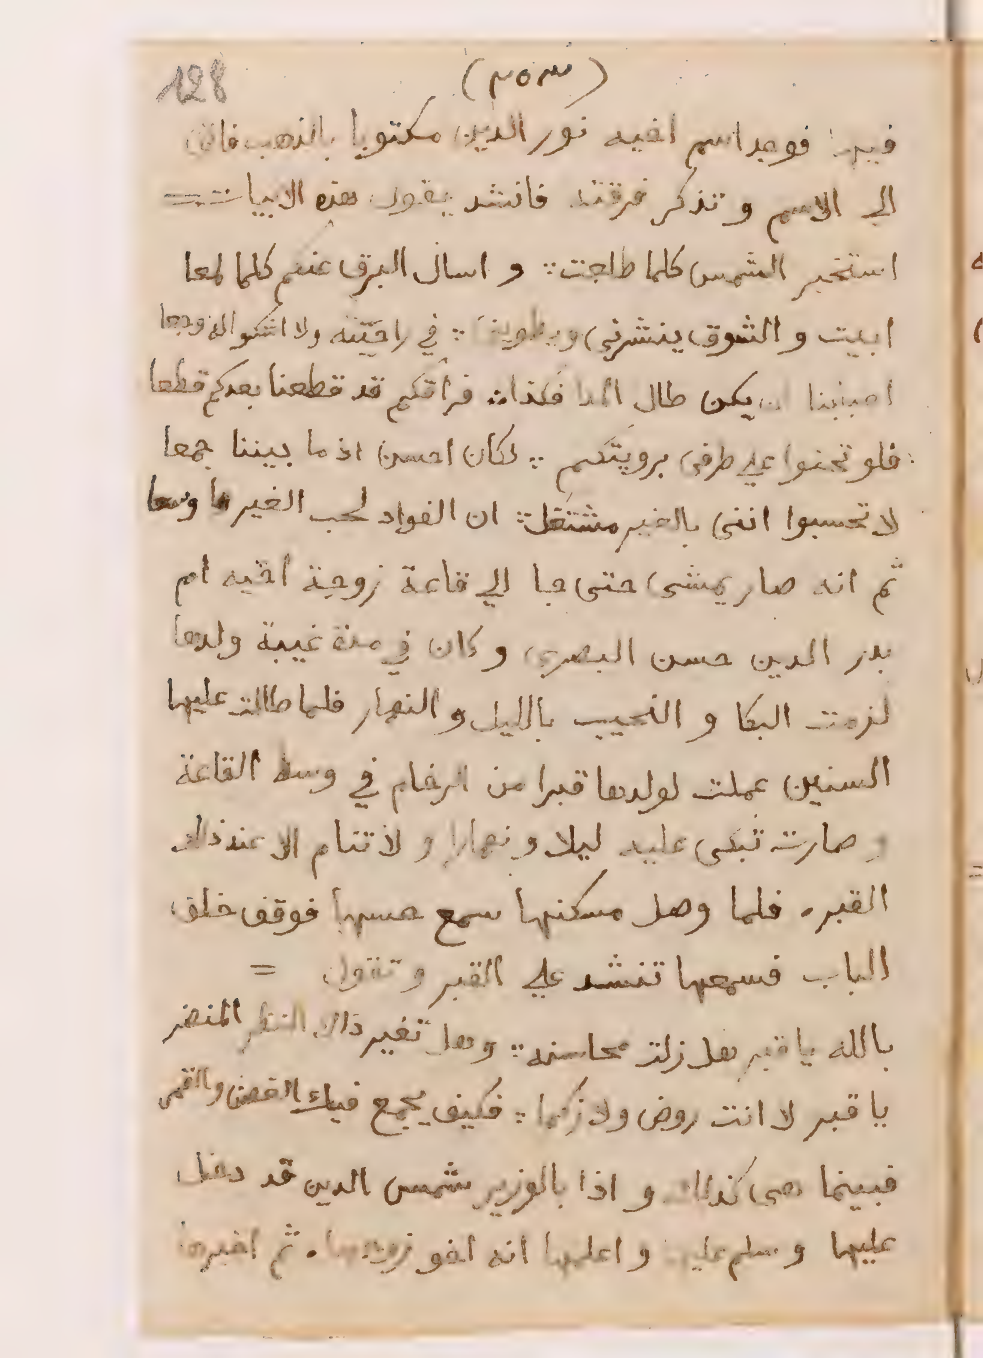 128
(٣٥٣)
فيها فوجد اسم اخيه نور الدين مكتوبا بالذهب فاتى
الي الاسم و تذكر فرقته فانشد يقول هذه الابيات =
استخبر الشمس كلما طلعت ∴ و اسال البرق عنكم كلما لمعا
ابيت و الشوق ينشرني ويطويني ∴ في راحيته ولا اشكو اله وجعا
احبابنا ان يكن طال المدا فكذا ∴ فراقكم قد قطعنا بعدكم قطعا
فلو تحنوا علي طرفى برويتكم ∴ لكان احسن اذ ما بيننا جمعا
لا تحسبوا اننى بالغير مشتغل ∴ ان الفواد لحب الغير ما وسعا
ثم انه صار يمشى حتى جا الي قاعة زوجة اخيه ام
بدر الدين حسن البصري و كان في مدة غيبة ولدها
لزمت البكا و النحيب بالليل و النهار فلما طالت عليها
السنين عملت لولدها قبرا من الرخام في وسط القاعة
و صارت تبكى عليه ليلا و نهارا و لا تنام الا عند ذلك
القبر. فلما وصل مسكنها سمع حسها فوقف خلف
الباب فسمعها تنشد علي القبر و تقول =
بالله يا قبر هل زلت محاسنه ∴ وهل تغير ذاك المنظر
يا قبر لا انت روض ولا ∴ فكيف يجمع فيك الغصن والقمر
فبينما هى كذلك و اذا بالوزير شمس الدين قد دخل
عليها و سلم عليها و اعلمها انه اخو زوجها. ثم اخبرها